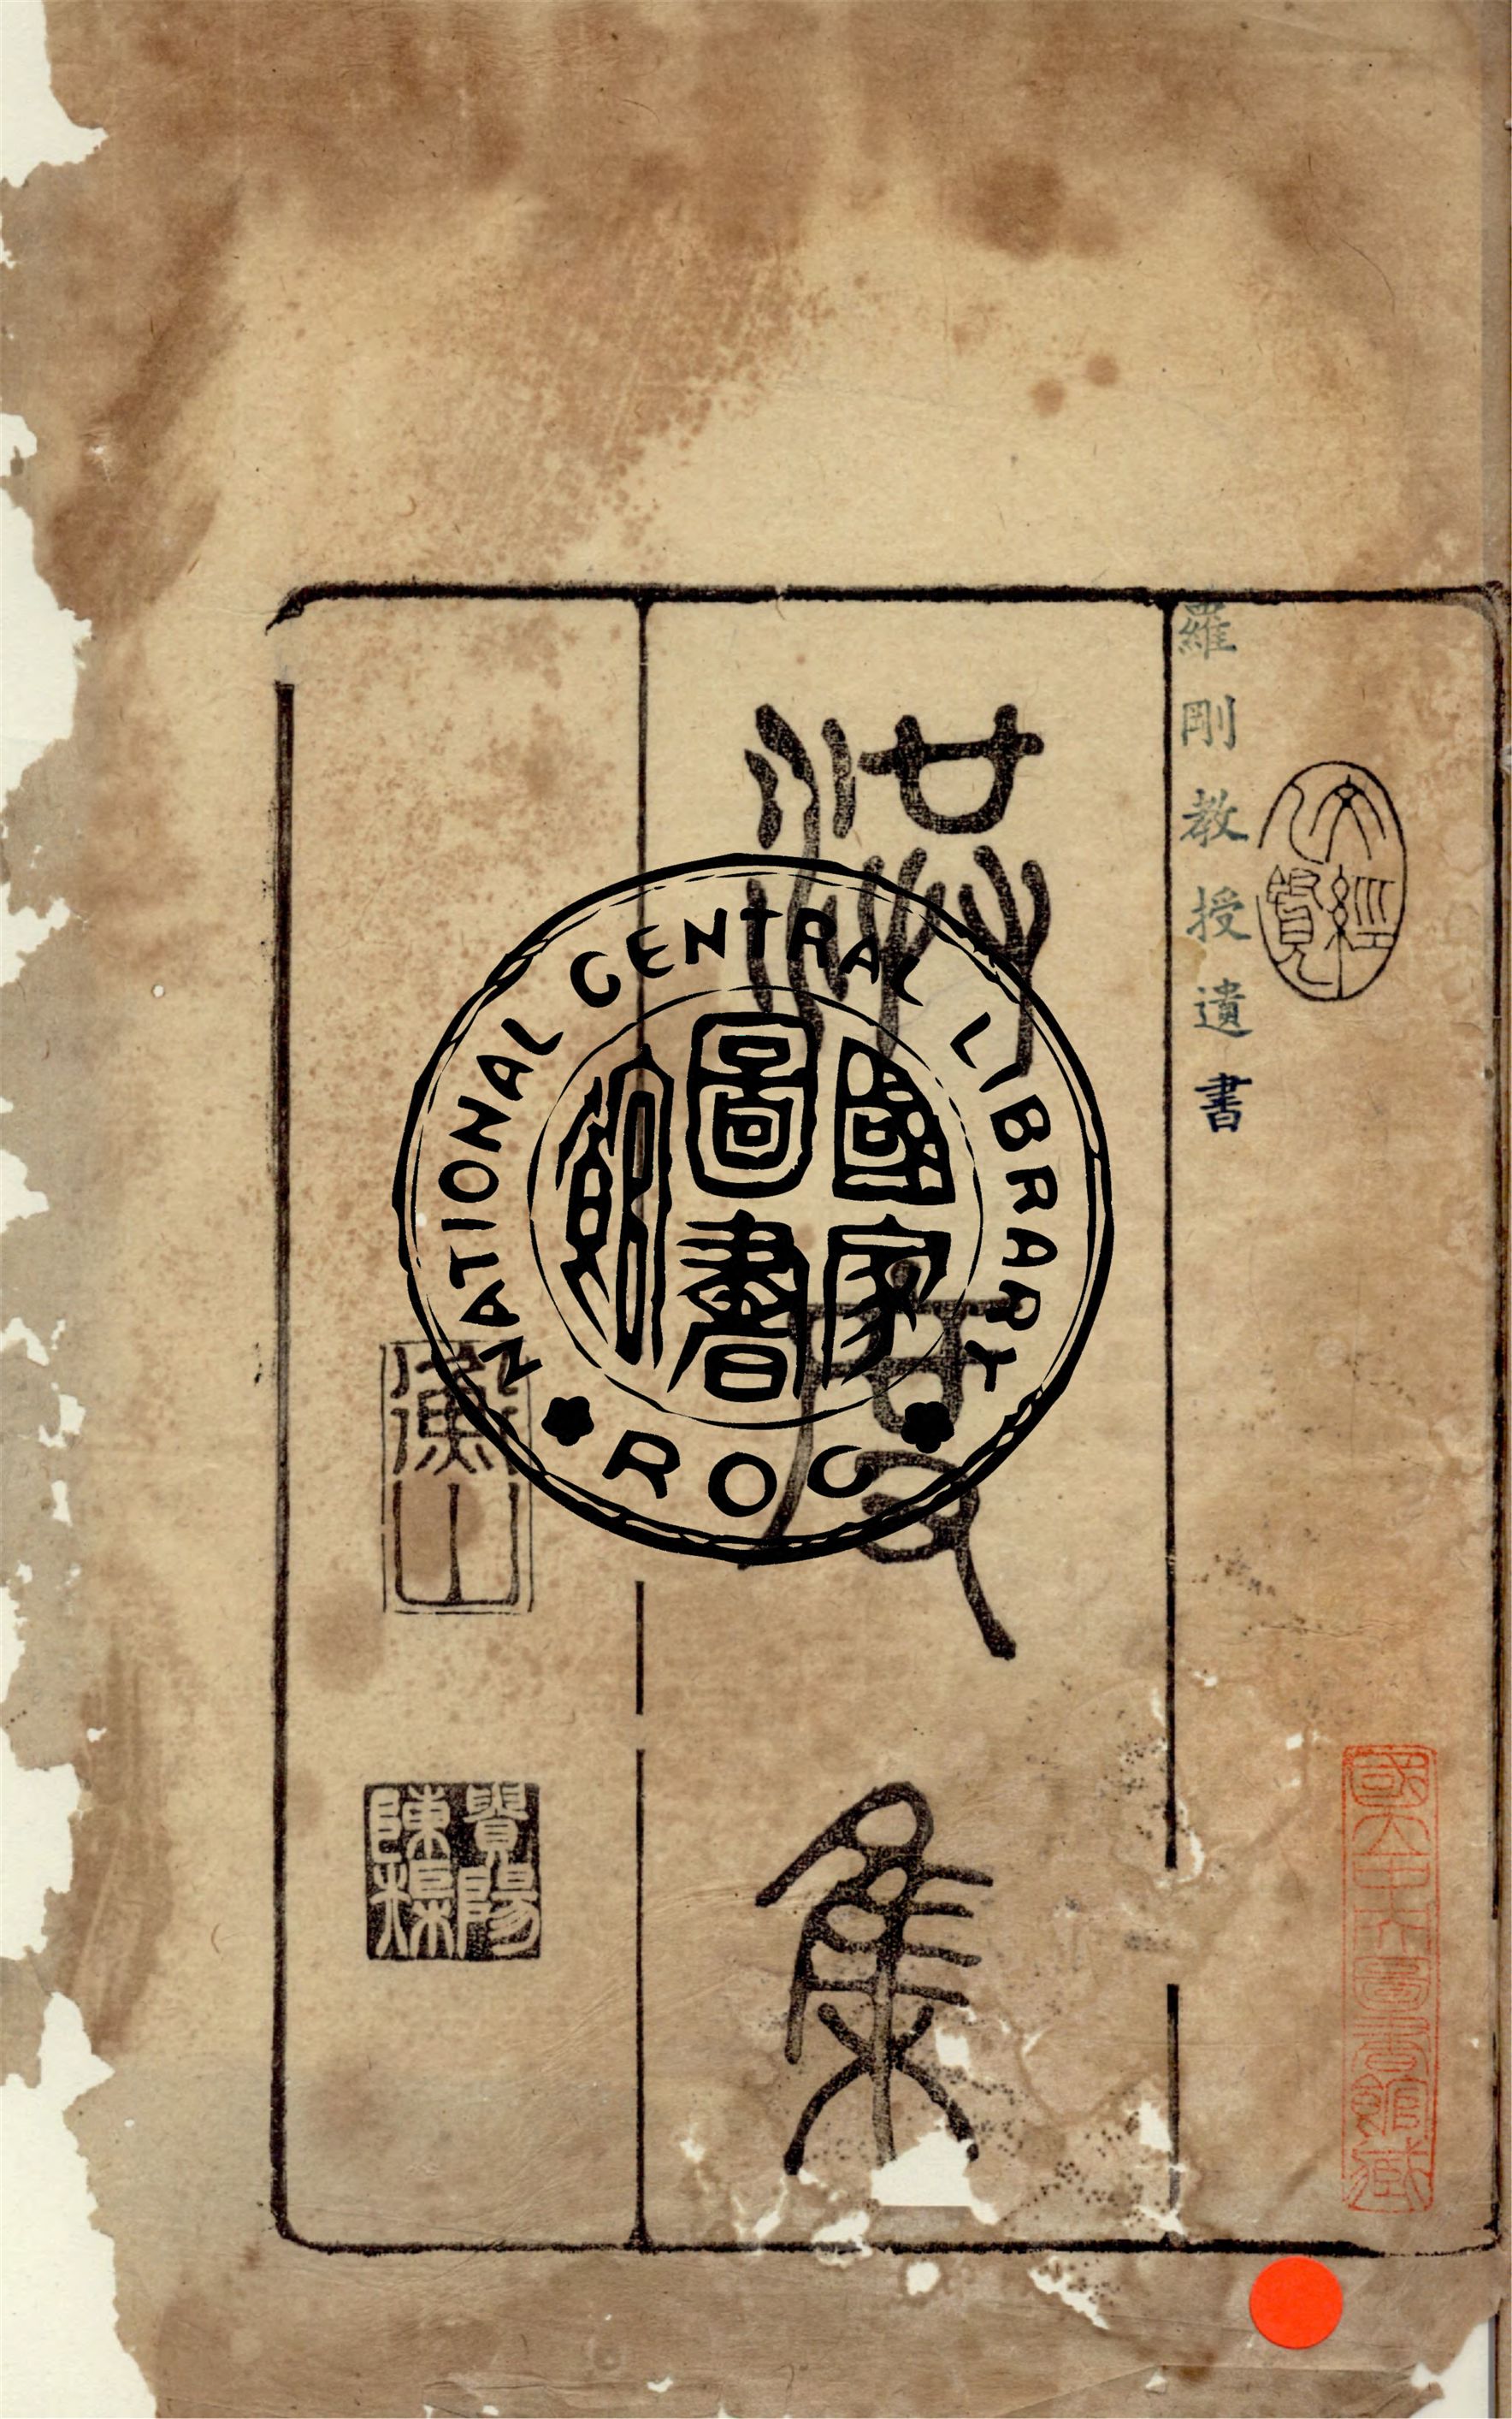 文經乙覽
國立中央圖書館藏
羅剛教授遺書
洪度集
衡山
貴陽陳榘
NATIONAL CENTRAL LIBRARY
國家圖書館
ROC